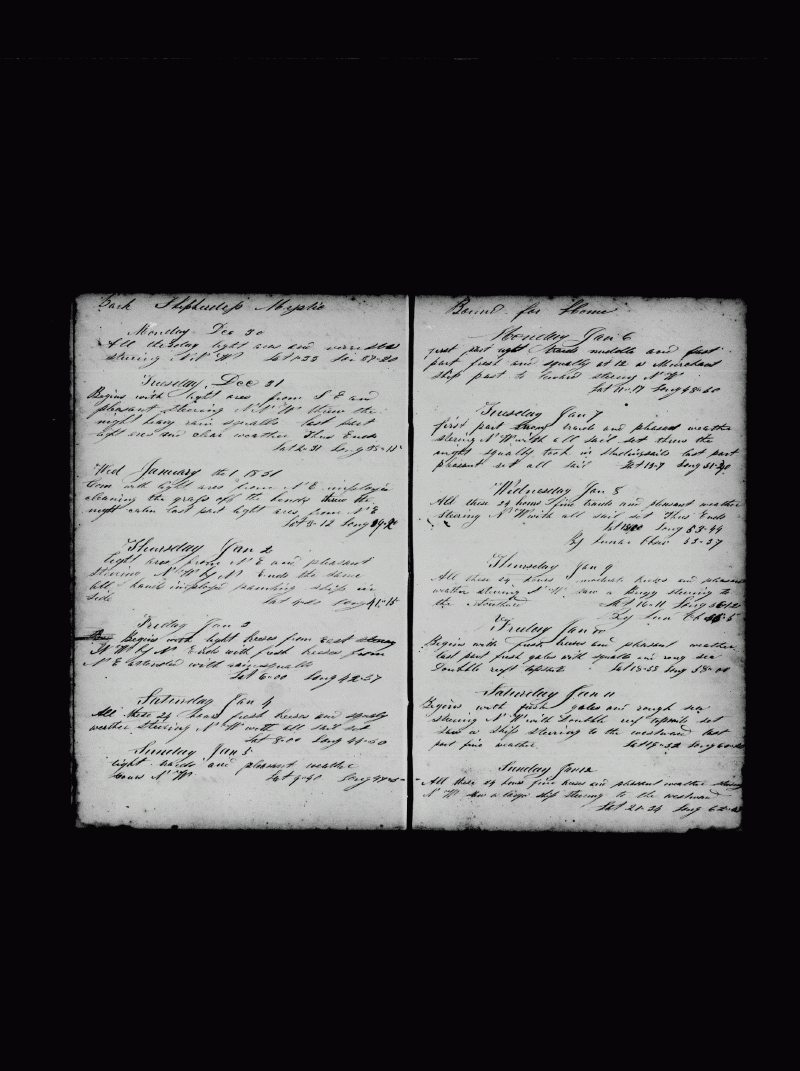 Bark Shepherdess Mystic
Monday Dec 30
All this day light airs and
steering N N W Lat 1-33
Tuesday, Dec 31
Begins with light aires from S E and
pleasant steering N N W threw the
night heavy rain squalls last part
light airs and clear weather Thus Ends
Lat 2-31 Long 35-15
Wed January the 1 1851
Com with light airs from N E imployed
cleaning the grass off the bends threw the
night calm last part light airs from N E
Lat 3-12 Long
Thursday Jan 2
light airs from N E and pleasant
steering N W by N Ends the same
all hands imployed painting ship in
side Lat Long 41-15
Friday Jan 3
Begins with light breses from east
N W by N Ends with fresh breses from
N E attended with rain squalls
Lat 6-00 Long 42-57
Saturday Jan 4
All these 24 hours fresh breses and squaly
weather steering N W with all sail set
Lat 8-00 Long 44-50
Sunday Jan 5
light and pleasant weather
N W Lat 9-41 Long
Bound for Home
Monday Jan 6
first part light trads middle and last
part fresh and squaly at 12 a Merchant
ship past to windard stering N W
Lat 11-17 Long 48-50
Tuesday Jan 7
first part strong trads and pleasent weather
stering N W with all sail set threw the
night squaly took in studingsails last part
pleasent set all sail Lat 13-7 Long
Wednesday Jan 8
All these 24 hours fine trads and pleasant weather
stering N W with all sail set Thus Ends
Lat Long 53-44
By Lunar Obser 53-37
Thursday Jan 9
All these 24 hours moderate breses and pleasant
wether stering N W saw a Brigg stering to
the Northard Lat 16-11 Long
By Lun
Friday Jan 10
Begins with fresh breses and pleasant weather
last part fresh gales with squalls and roug sea
Doubble reeft topsails Lat 18-55 Long 58-00
Saturday Jan 11
Begins with fresh gales and rough sea
stering N W with Doubble reef topsails set
saw a ship stering to the westward last
part fine weather Lat 19-52 Long
Sunday Jan 12
All these 24 hours fine breses and pleasent weather stering
N W saw a large ship stering to the westward
Lat 21-24 Long